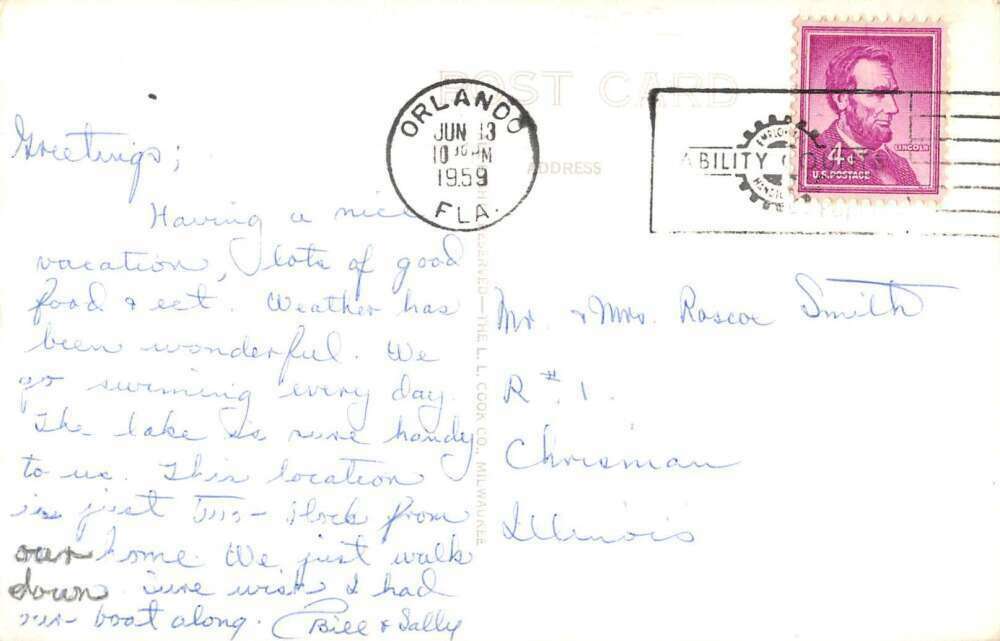 POST CARD
ADDRESS
ORLANDO
JUN 13
10 30 PM
1959
FLA.
ABILITY
LINCOLN
4¢
U.S. POSTAGE
Greetings;
Having a nice
vacation, lots of good
food & ect. Weather has
been wonderful. We
go swimming every day.
The lake is nice handy
to us. This location
is just block from
our home. We just walk
down. Sure wish I had
our boat along. Bill & Sally
RESERVED—THE L. L. COOK CO., MILWAUKEE
Mr. & Mrs. Roscoe Smith
R #1.
Chrisman
Illinois